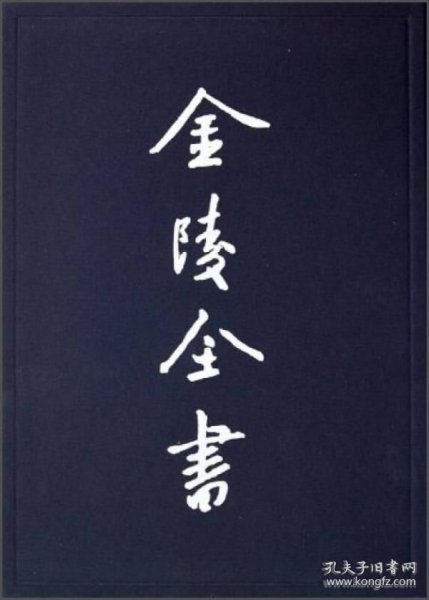 金陵全書
孔夫子旧書网
www.kongfz.com